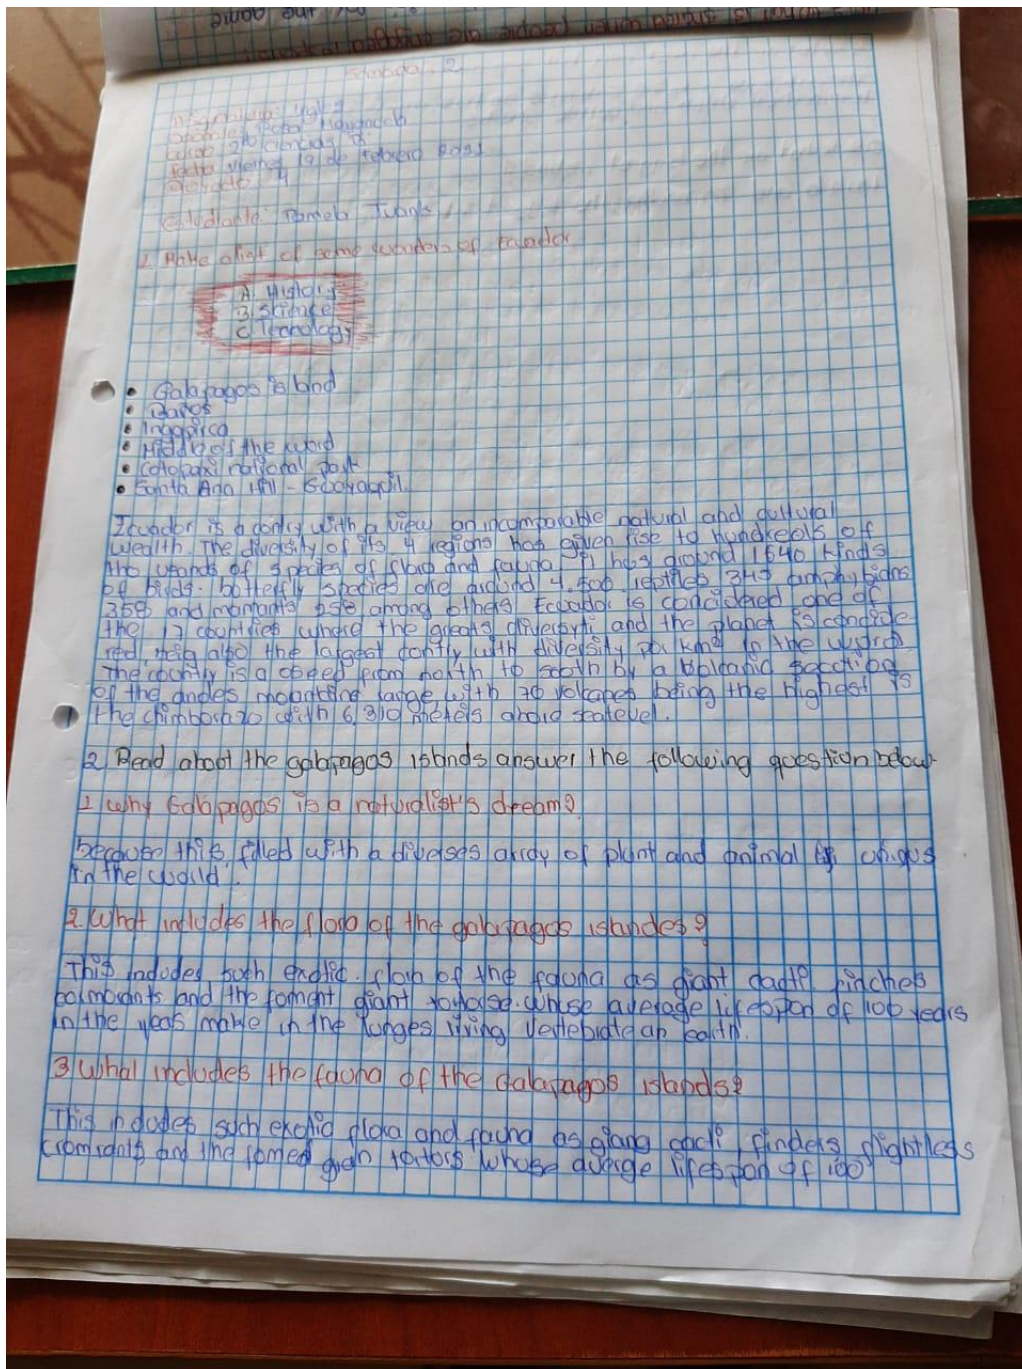 the game
what is when people are
Semana 2
Asignatura: Ingles
Docente: Rosa
Curso: 2do ciencias
fecha Viernes 19 de febrero 2021
4
Estudiante: Pamela
1. Make alist of some wonders of Ecuador
A. History
B. Science
C. Tecnology
• Galapagos island
• Baños
• Ingapirca
• Middle of the word
• Cotopaxi national park
• Santa Ana Hill - Guayaquil
Ecuador is a contry with a view an incomparable natural and cultural
wealth. The diversity of its 4 regions has given rise to hundreds off
tho usands of species of flora and fauna. It has around 1640 kinds
of birds. botterfly species are around 4.500. reptiles 345 amphybians
358 and mammants 258 among others Ecuador is concidered one of
the 17 countries where the greats diversiti and the planet is concide
red, being also the largest contry with diversity por km2 in the word
The country is a obeed from north to south by a bolcanic section
of the andes mountains range with 70 volcanes being the highest is
the chimborazo with 6,310 meters abore sealevel.
2 Read about the galapagos islands answer the following question below
1 Why Galapagos is a naturalist's dream?
because this filled with a diverses array of plant and animal uniqus
in the world.
2. What includes the flora of the galapagos islandes?
This includes such exotic flora of the fauna as giant cacti finches
and the giant tortoise whose average lifespan of 100 years
in the yeas make in the longes living vertebrate an earth.
3 What includes the fauna of the Galapagos islands?
This includes such exotic flora and fauna as giang cacti finders flightless
and the famed gian tortors whose averge lifespan of 100